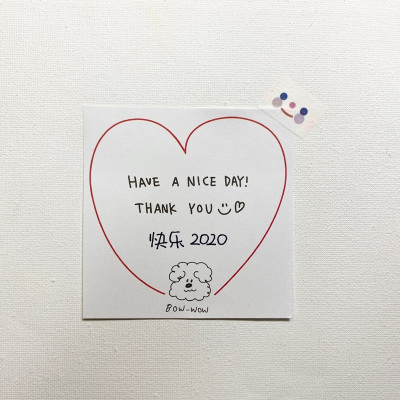 HAVE A NICE DAY!
THANK YOU
快乐 2020
BOW-WOW